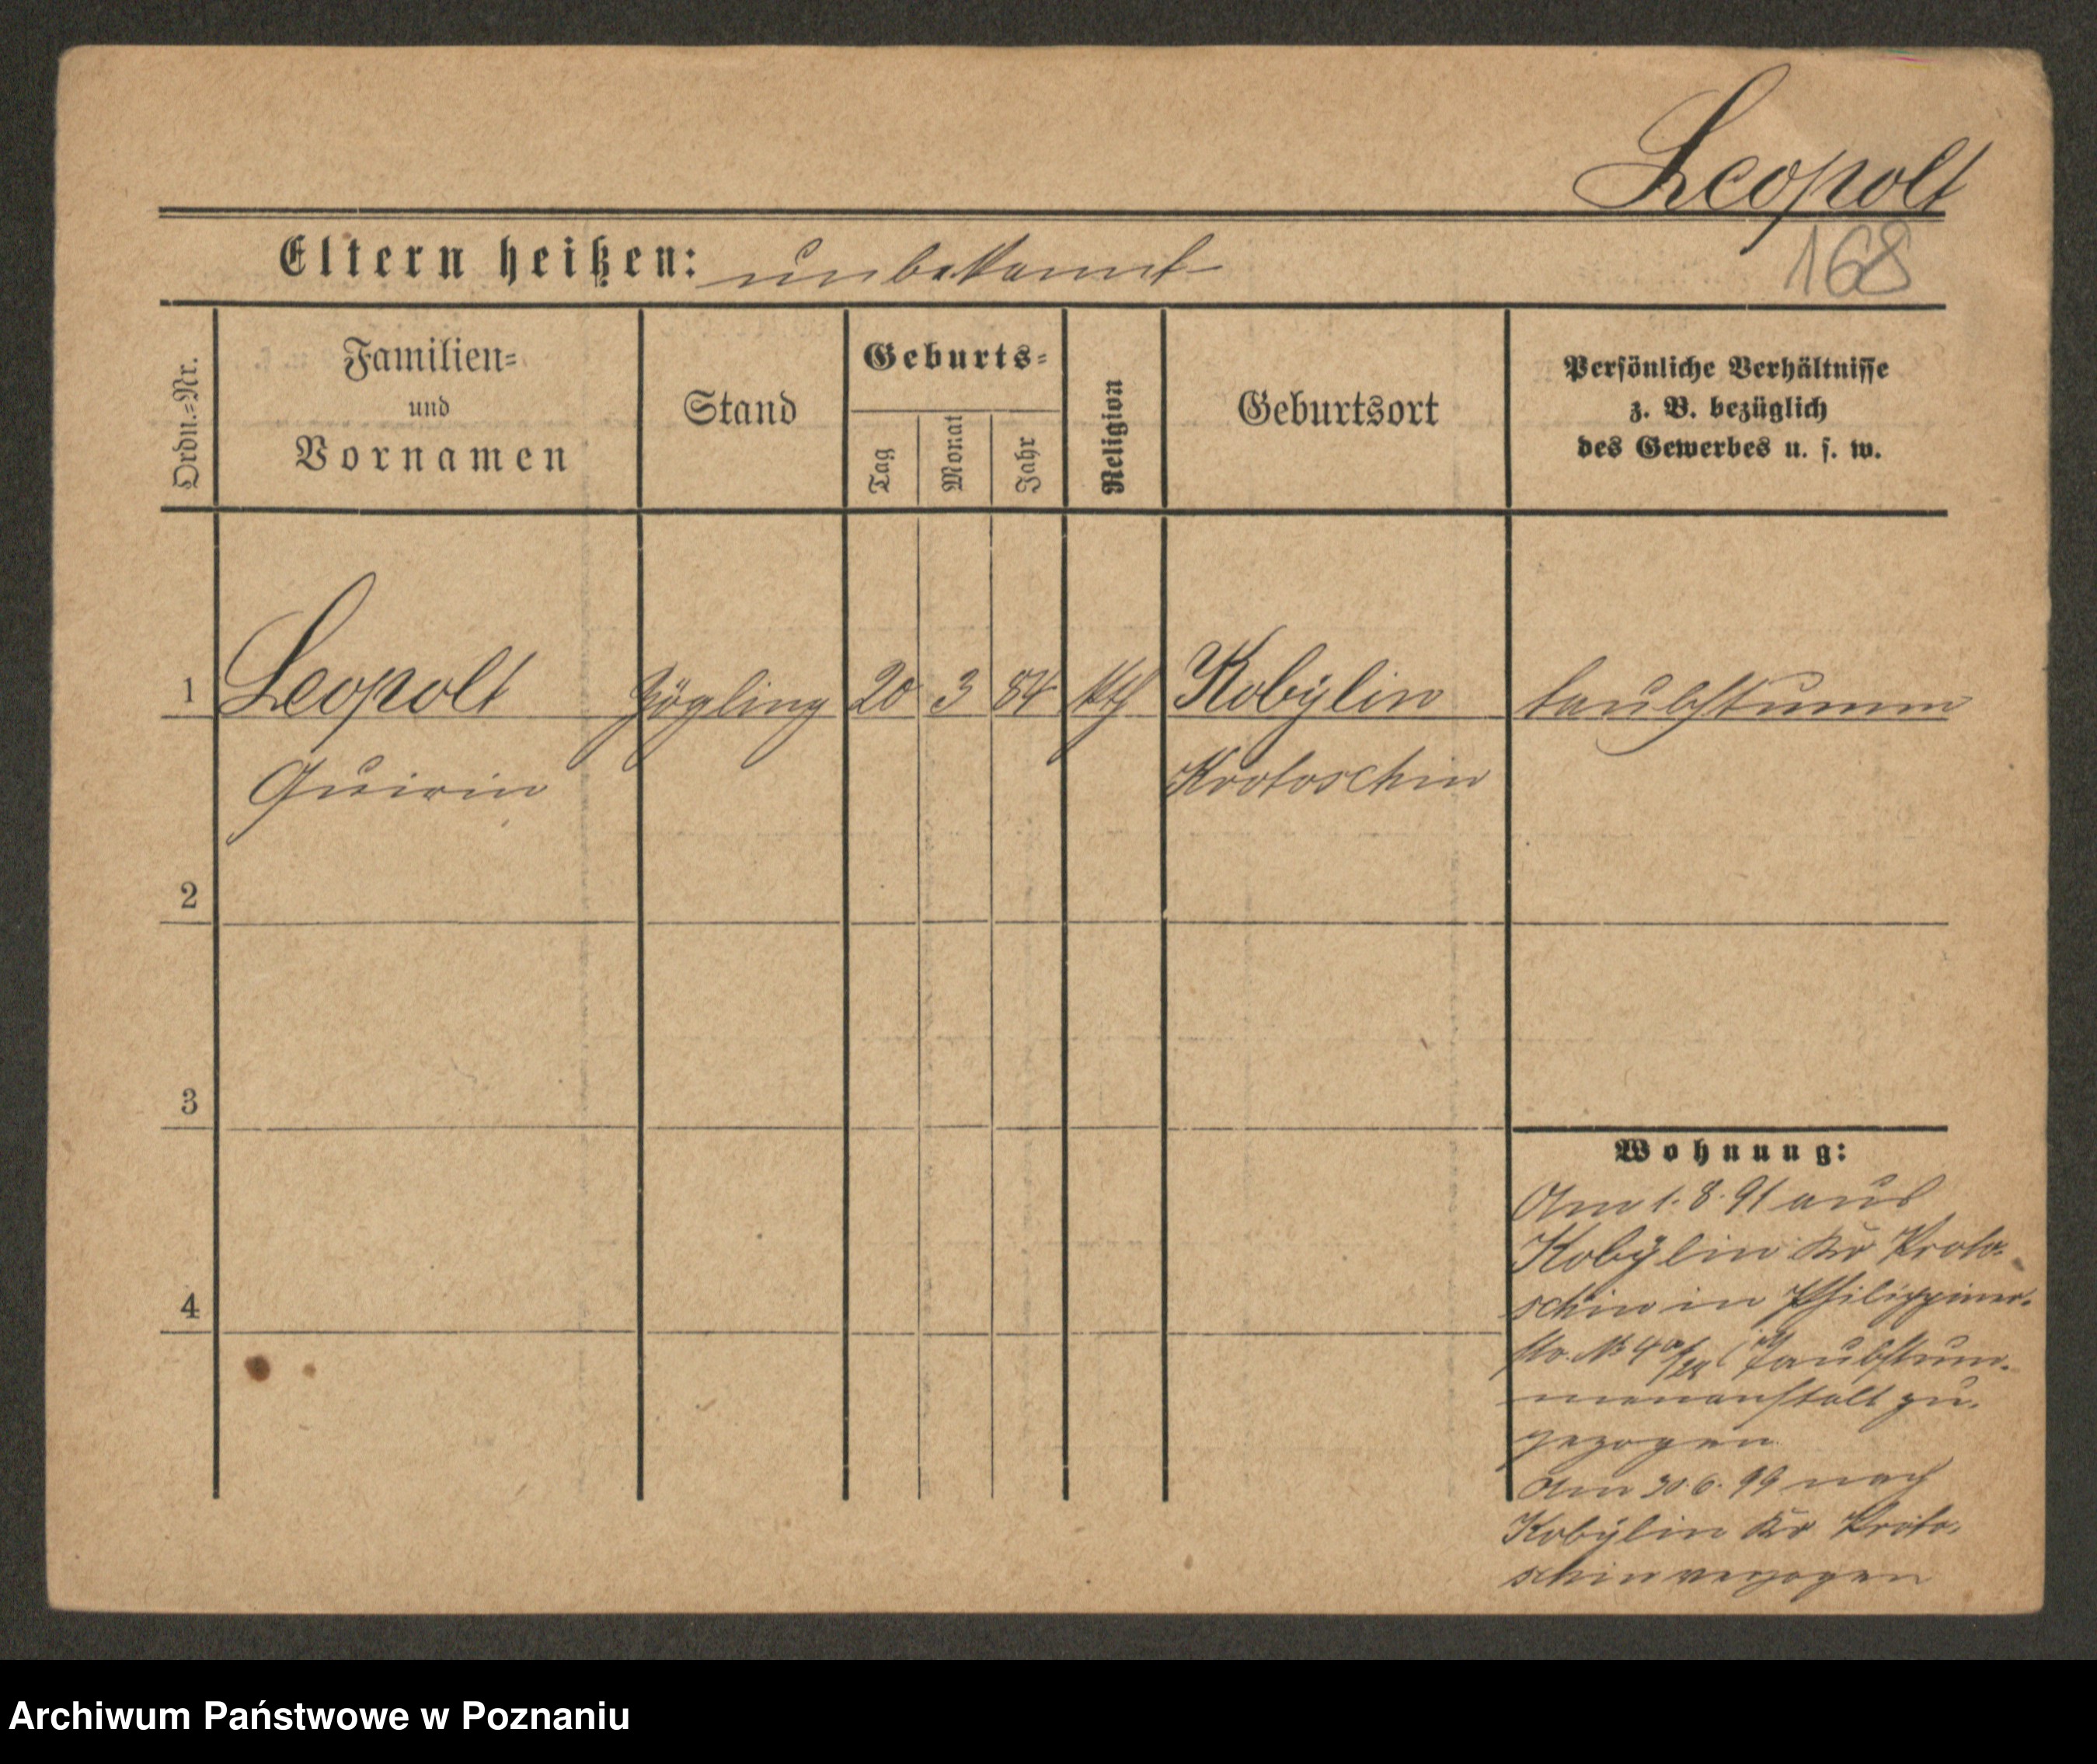 Leopolt
168
Eltern heißen: unbekannt
Ordn.=Nr.
Familien=
und
Vornamen
Stand
Geburts=
Tag
Monat
Jahr
Religion
Geburtsort
Persönliche Verhältnisse
z. B. bezüglich
des Gewerbes u. s. w.
1 Leopolt Zögling 20 3 84 kth Kobylin taubstumm
Quirin Krotoschin
2
3
4
Wohnung:
Am 1. 8. 91 aus
Kobylin Kr Kroto-
schin in Philippiner-
str. No 4 Taubstum-
menanstalt zu-
gezogen
Am 30. 6. 99 nach
Kobylin Kr Kroto-
schin verzogen
Archiwum Państwowe w Poznaniu